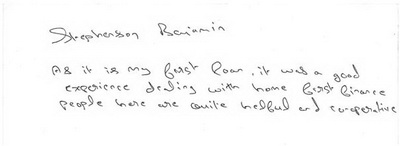 Stephenson Benjamin
As it is my first loan, it was a good
experience dealing with home first finance
people here are quite helpful and co-operative